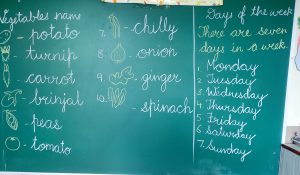 Vegetables name
- potato
- turnip
- carrot
- brinjal
- peas
- tomato
7. - chilly
8. - onion
9. - ginger
10. - spinach
Days of the week
There are seven
days in a week.
1. Monday
2. Tuesday
3. Wednesday
4. Thursday
5. Friday
6. Saturday
7. Sunday